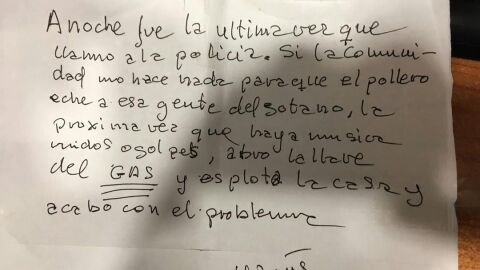 Anoche fue la ultima vez que
llamo a la policia. Si la comuni-
dad no hace nada para que el pollero
eche a esa gente del sotano, la
proxima vez que haya musica
ruidos o golpes, abro la llave
del GAS y esplota la casa y
acabo con el problema